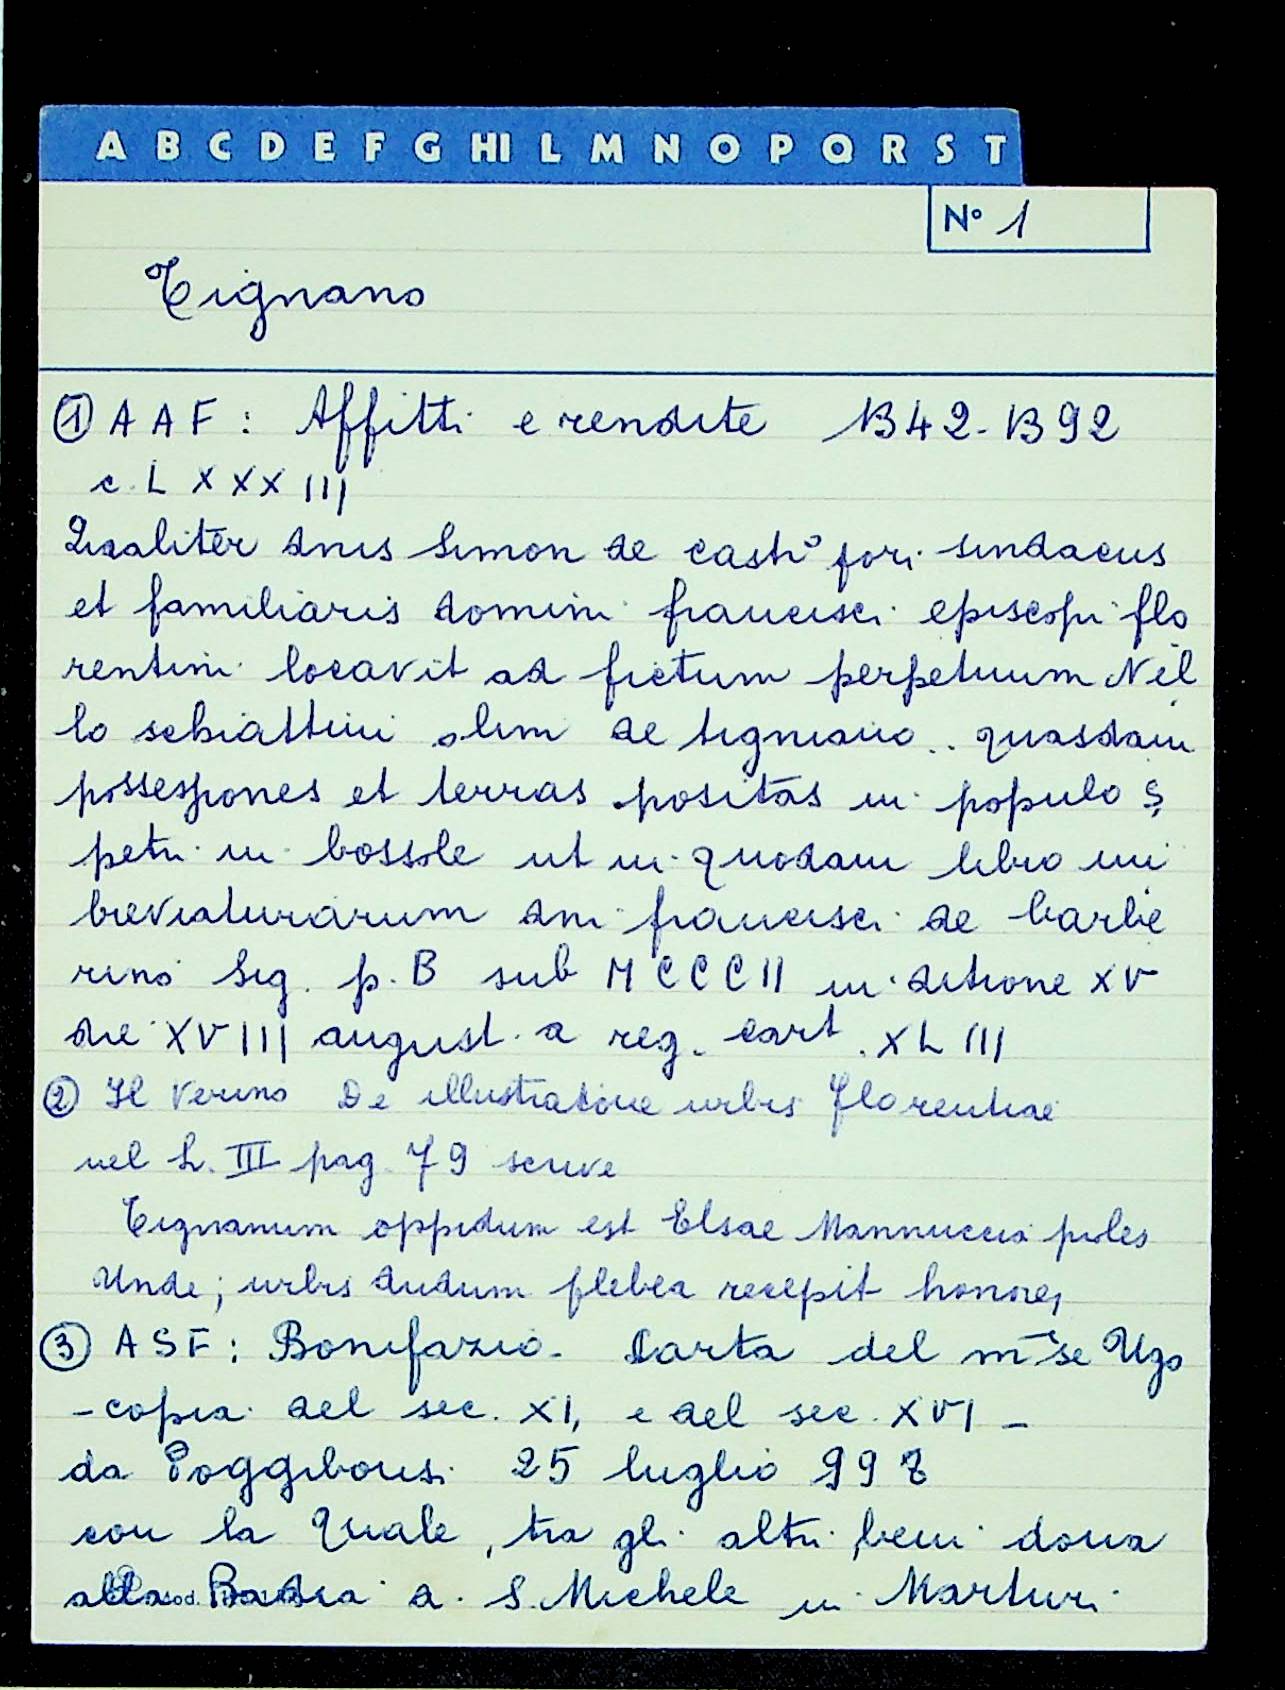 A B C D E F G HI L M N O P Q R S T
Nº 1
Tignano
① A A F : Affitti e rendite 1342-1392
c. L X X X III
Qualiter dnus Simon de castro fori sindacus
et familiaris domini francisci episcopi flo
rentini locavit ad fictum perpetuum Nel
lo schiattini olim de tigniano .. quasdam
possessiones et terras positas in populo S
petri in bossole ut in quodam libro im
breviaturarum dni francisci de barbe
rino Sig. p. B sub M CCCII in ditione XV
die XVIII august. a reg. cart. XL III
② Il Verino De illustratione urbis florentiae
nel L. III pag. 79 scrive
Tignanum oppidum est Elsae Mannuccia proles
Unde; urbis dudum plebea recepit honores
③ A S F : Bonifazio - Carta del m–se Ugo
- copia del sec. XI, e del sec. XVI -
da Poggibonsi 25 luglio 998
con la quale, tra gli altri beni dona
alla Badia a S. Michele in Marturi